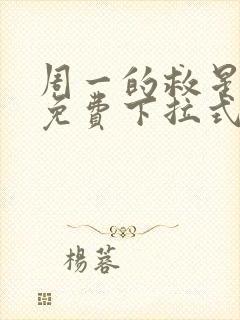 周一的救星
免費下拉式
楊蓉